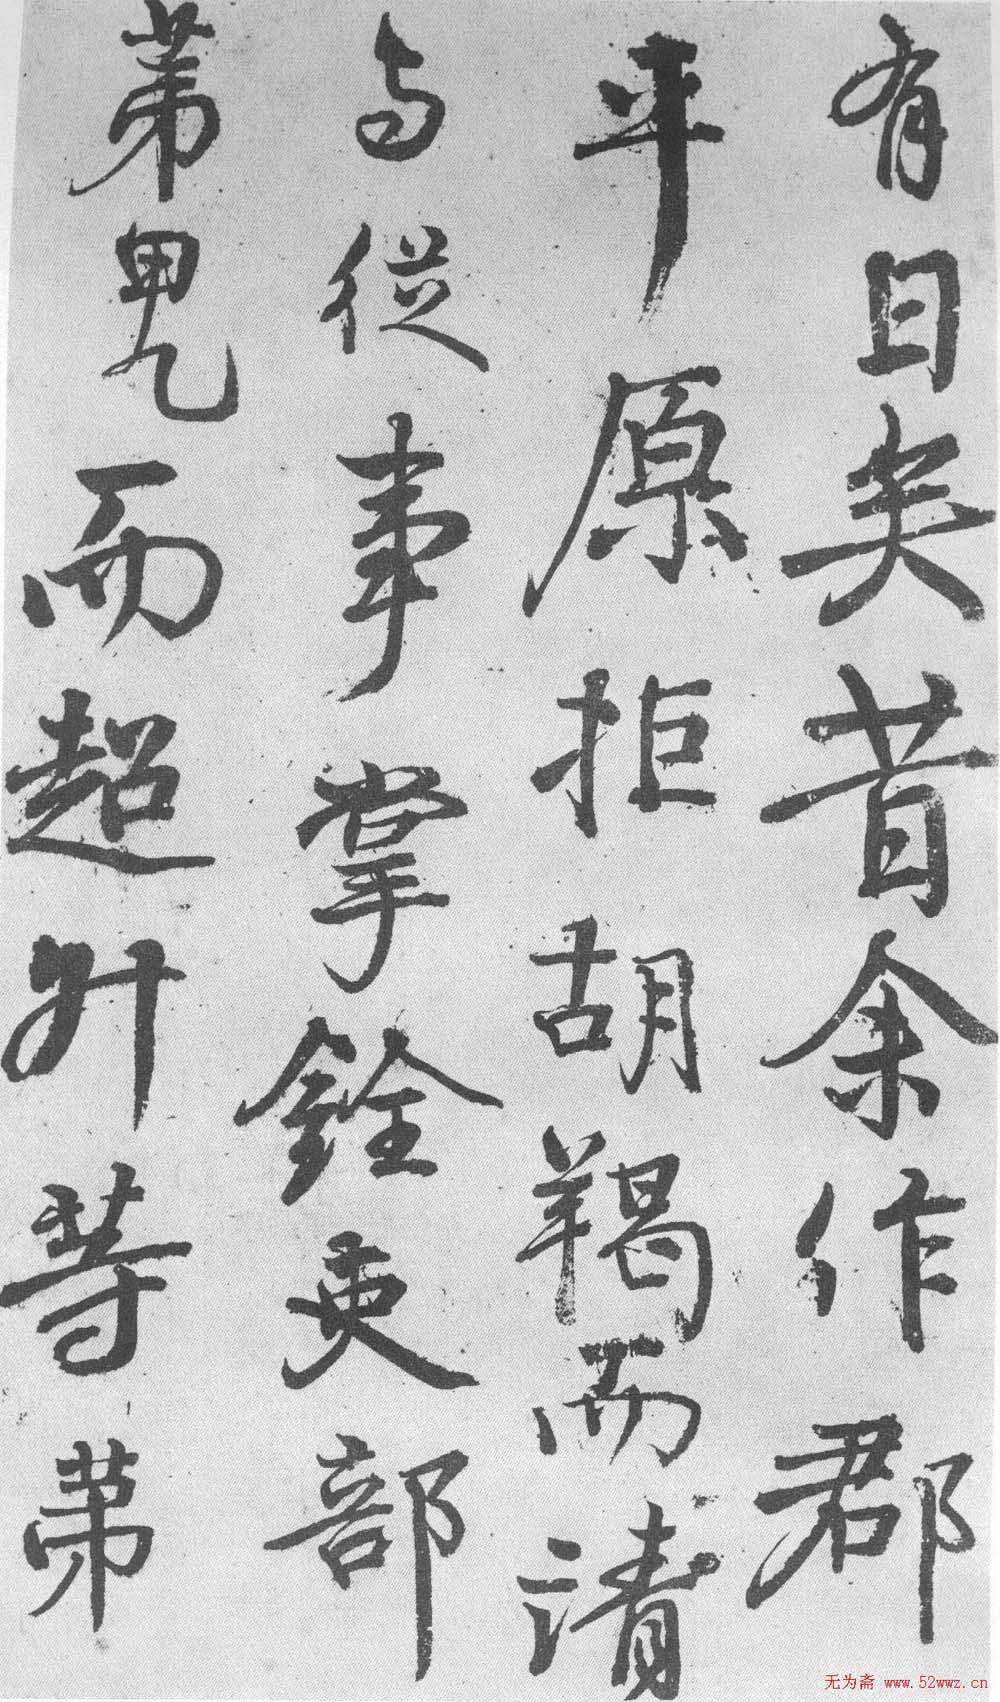 有日矣昔余作郡
平原拒胡羯而请
与從事掌銓吏部
第甲乙而超升等第
无为斋 www.52wwz.cn